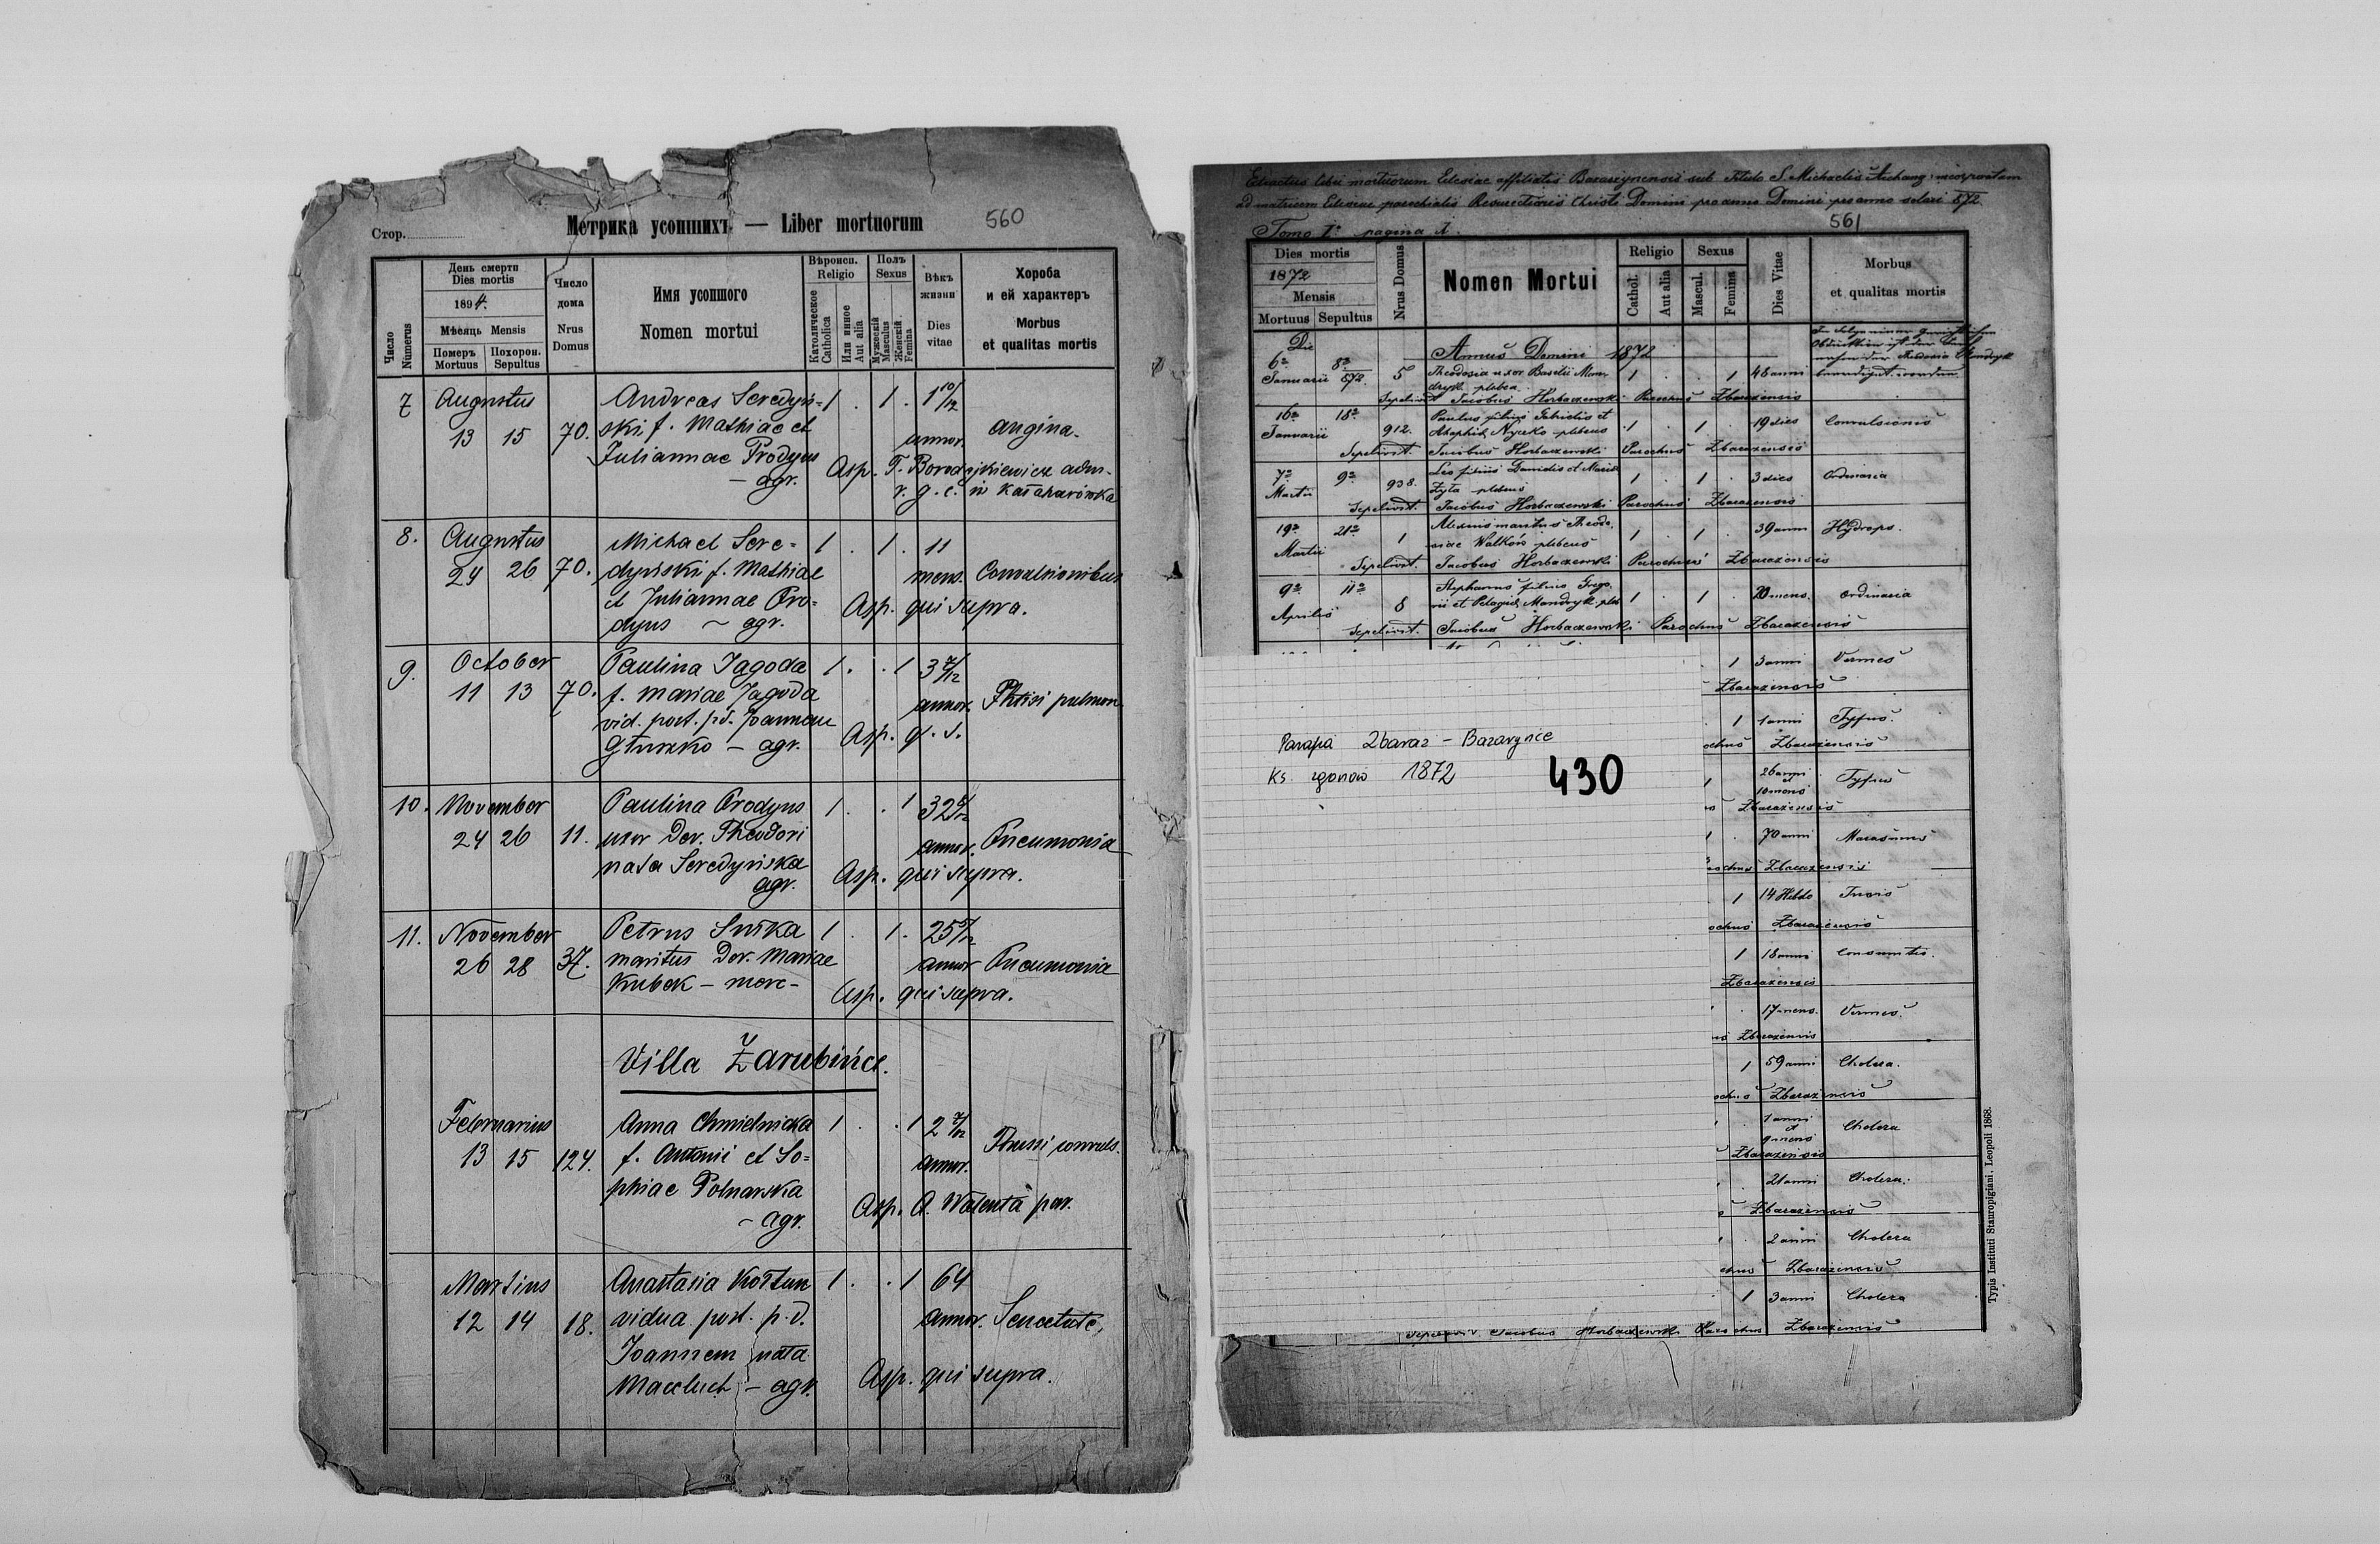 Стор.
Метрика усопшихъ. — Liber mortuorum
560
Число Numerus
День смерти
Dies mortis
1894.
Мѣсяць Mensis
Померъ Похорон.
Mortuus Sepultus
Число
дома
Nrus
Domus
Имя усопшого
Nomen mortui
Вѣроисп.
Religio
Католическое
Catholica
Или иное
Aut alia
Полъ
Sexus
Мужескій
Masculus
Женскій
Femina
Вѣкъ
жизни
Dies
vitae
Хороба
и ей характеръ
Morbus
et qualitas mortis
7 Augustus Andreas Seredyń- 1 . 1 . 1 10/12
13 15 70. ski f. Mathiae et annor. angina.
Juliannae Prodyus Asp. T. adm.
- agr. r. g. c. in
8. Augustus Michael Sere- 1 . 1 . 11
24 26 70. dyński f. Mathiae mens. Convulsionibus
et Juliannae Pro- Asp. qui supra.
dyus ~ agr.
9. October Paulina Jagoda 1 . . 1 3 7/12
11 13 70. f. Mariae Jagoda annor. Phtisi pulmon.
vid. post. p.d. Joannem Asp. q. s.
Głuszko - agr.
10. November Paulina Prodyus 1 . . 1 32
24 26 11. uxor Der. Theodori annor. Pneumonia
nata Seredyńska Asp. qui supra.
agr.
11. November Petrus 1 . 1 . 25
26 28 37. maritus Der. Mariae annor Pneumonia
Kubek - merc- Asp. qui supra.
Villa Zarubińce.
Februarius Anna Chmielnicka 1 . . 1 2 7/12
13 15 124. f. Antonii et So- annor. Thussi convuls.
phiae Polnarska Asp. A. Walenta par.
- agr.
Martius Anastasia Kołtun 1 . . 1 64
12 14 18. vidua post. p.d. annor. Senectute,
Joannem nata Asp. qui supra.
- agr.
Extractus libri mortuorum Eclesiae affiliatis Bazarzyncensis sub Titulo S. Michaelis Archang: incorporatam
ad matricem Eclesiae parochialis Resurectionis Christi Domini pro anno Domini pro anno solari 872.
561
Tomo I° pagina 1.
Dies mortis
1872
Mensis
Mortuus Sepultus
Nrus Domus
Nomen Mortui
Religio
Cathol.
Aut alia
Sexus
Mascul.
Femina
Dies Vitae
Morbus
et qualitas mortis
Die Annus Domini 1872
6a 8a Theodosia uxor Basilii Man-
Januarii 872. 5 dryk plebea. 1 . . 1 48 anni
Sepelivit Jacobus Horbaczewski Parochus Zbarazensis
16a 18a Paulus filius Gabrielis et
Januarii 912. Nyczko plebeus 1 . 1 . 19 dies Convulsionis
Sepelivit. Jacobus Horbaczewski Parochus Zbarazensis
7a 9a Leo filius Danielis et Mariae
Martii 938. Zyła plebeus 1 . 1 . 3 dies Ordinaria
Sepelivit. Jacobus Horbaczewski Parochus Zbarazensis
19a 21a Alexius maritus Theodo-
Martii 1 siae Walków plebeus 1 . 1 . 39 anni Hydrops.
Sepelivit. Jacobus Horbaczewski Parochus Zbarazensis
9a 11a Stephanus filius Grego-
Aprilis 8 rii et Pelagiae Mandryk pleb 1 . 1 . 20 mens. Ordinaria
Sepelivit. Jacobus Horbaczewski Parochus Zbarazensis
1 3 anni Vermes
Zbarazensis
1 1 anni Tyfus.
ochus Zbarazensis
1 26 anni et 10 mens Tyfus
Zbarazensis
1 . 70 anni Marasmus
ochus Zbarazensis
1 14 Hebdo Tusis
ochus Zbarazensis
1 18 anni Consumtis.
Zbarazensis
. 17 mens. Vermes.
Zbarazensis
1 59 anni Cholera.
ochus Zbarazensis
. 1 anni et 9 mens Cholera
Zbarazensis
. 21 anni Cholera.
Zbarazensis
. 2 anni Cholera
chus Zbarazensis
1 3 anni Cholera
Sepelivit Jacobus Horbaczewski Parochus Zbarazensis
Parafia Zbaraż - Bazarynce
Ks. zgonów 1872
430
Typis Instituti Stauropigiani. Leopoli 1868.